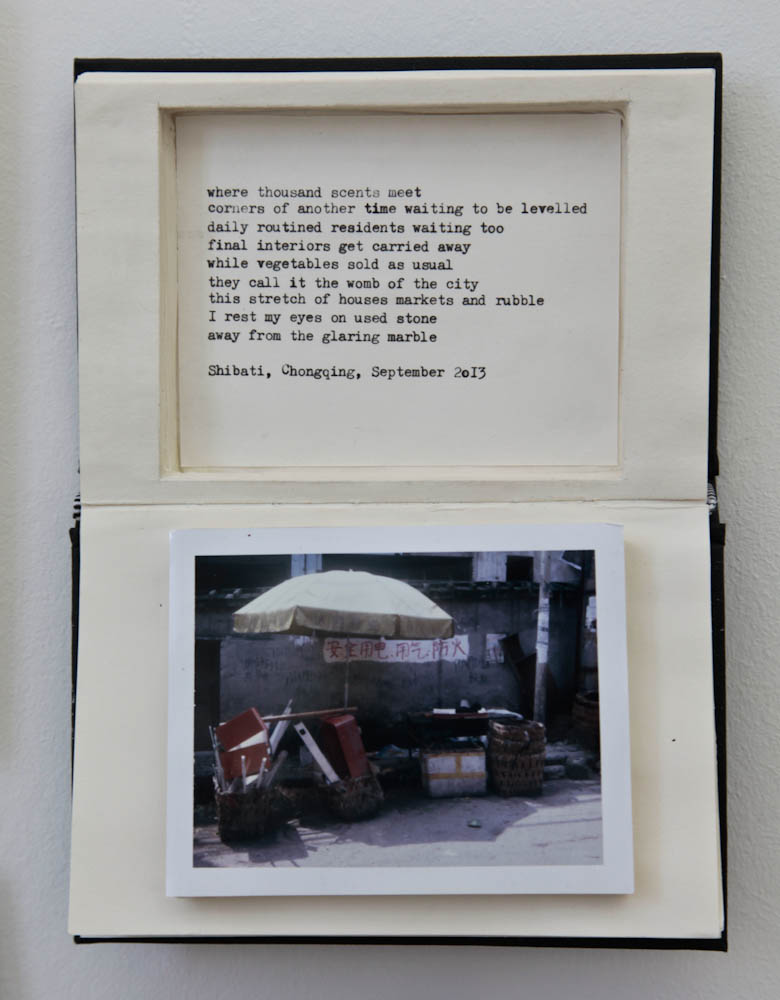 where thousand scents meet
corners of another time waiting to be levelled
daily routined residents waiting too
final interiors get carried away
while vegetables sold as usual
they call it the womb of the city
this stretch of houses markets and rubble
I rest my eyes on used stone
away from the glaring marble
Shibati, Chongqing, September 2oI3
安全用电.用气.防火